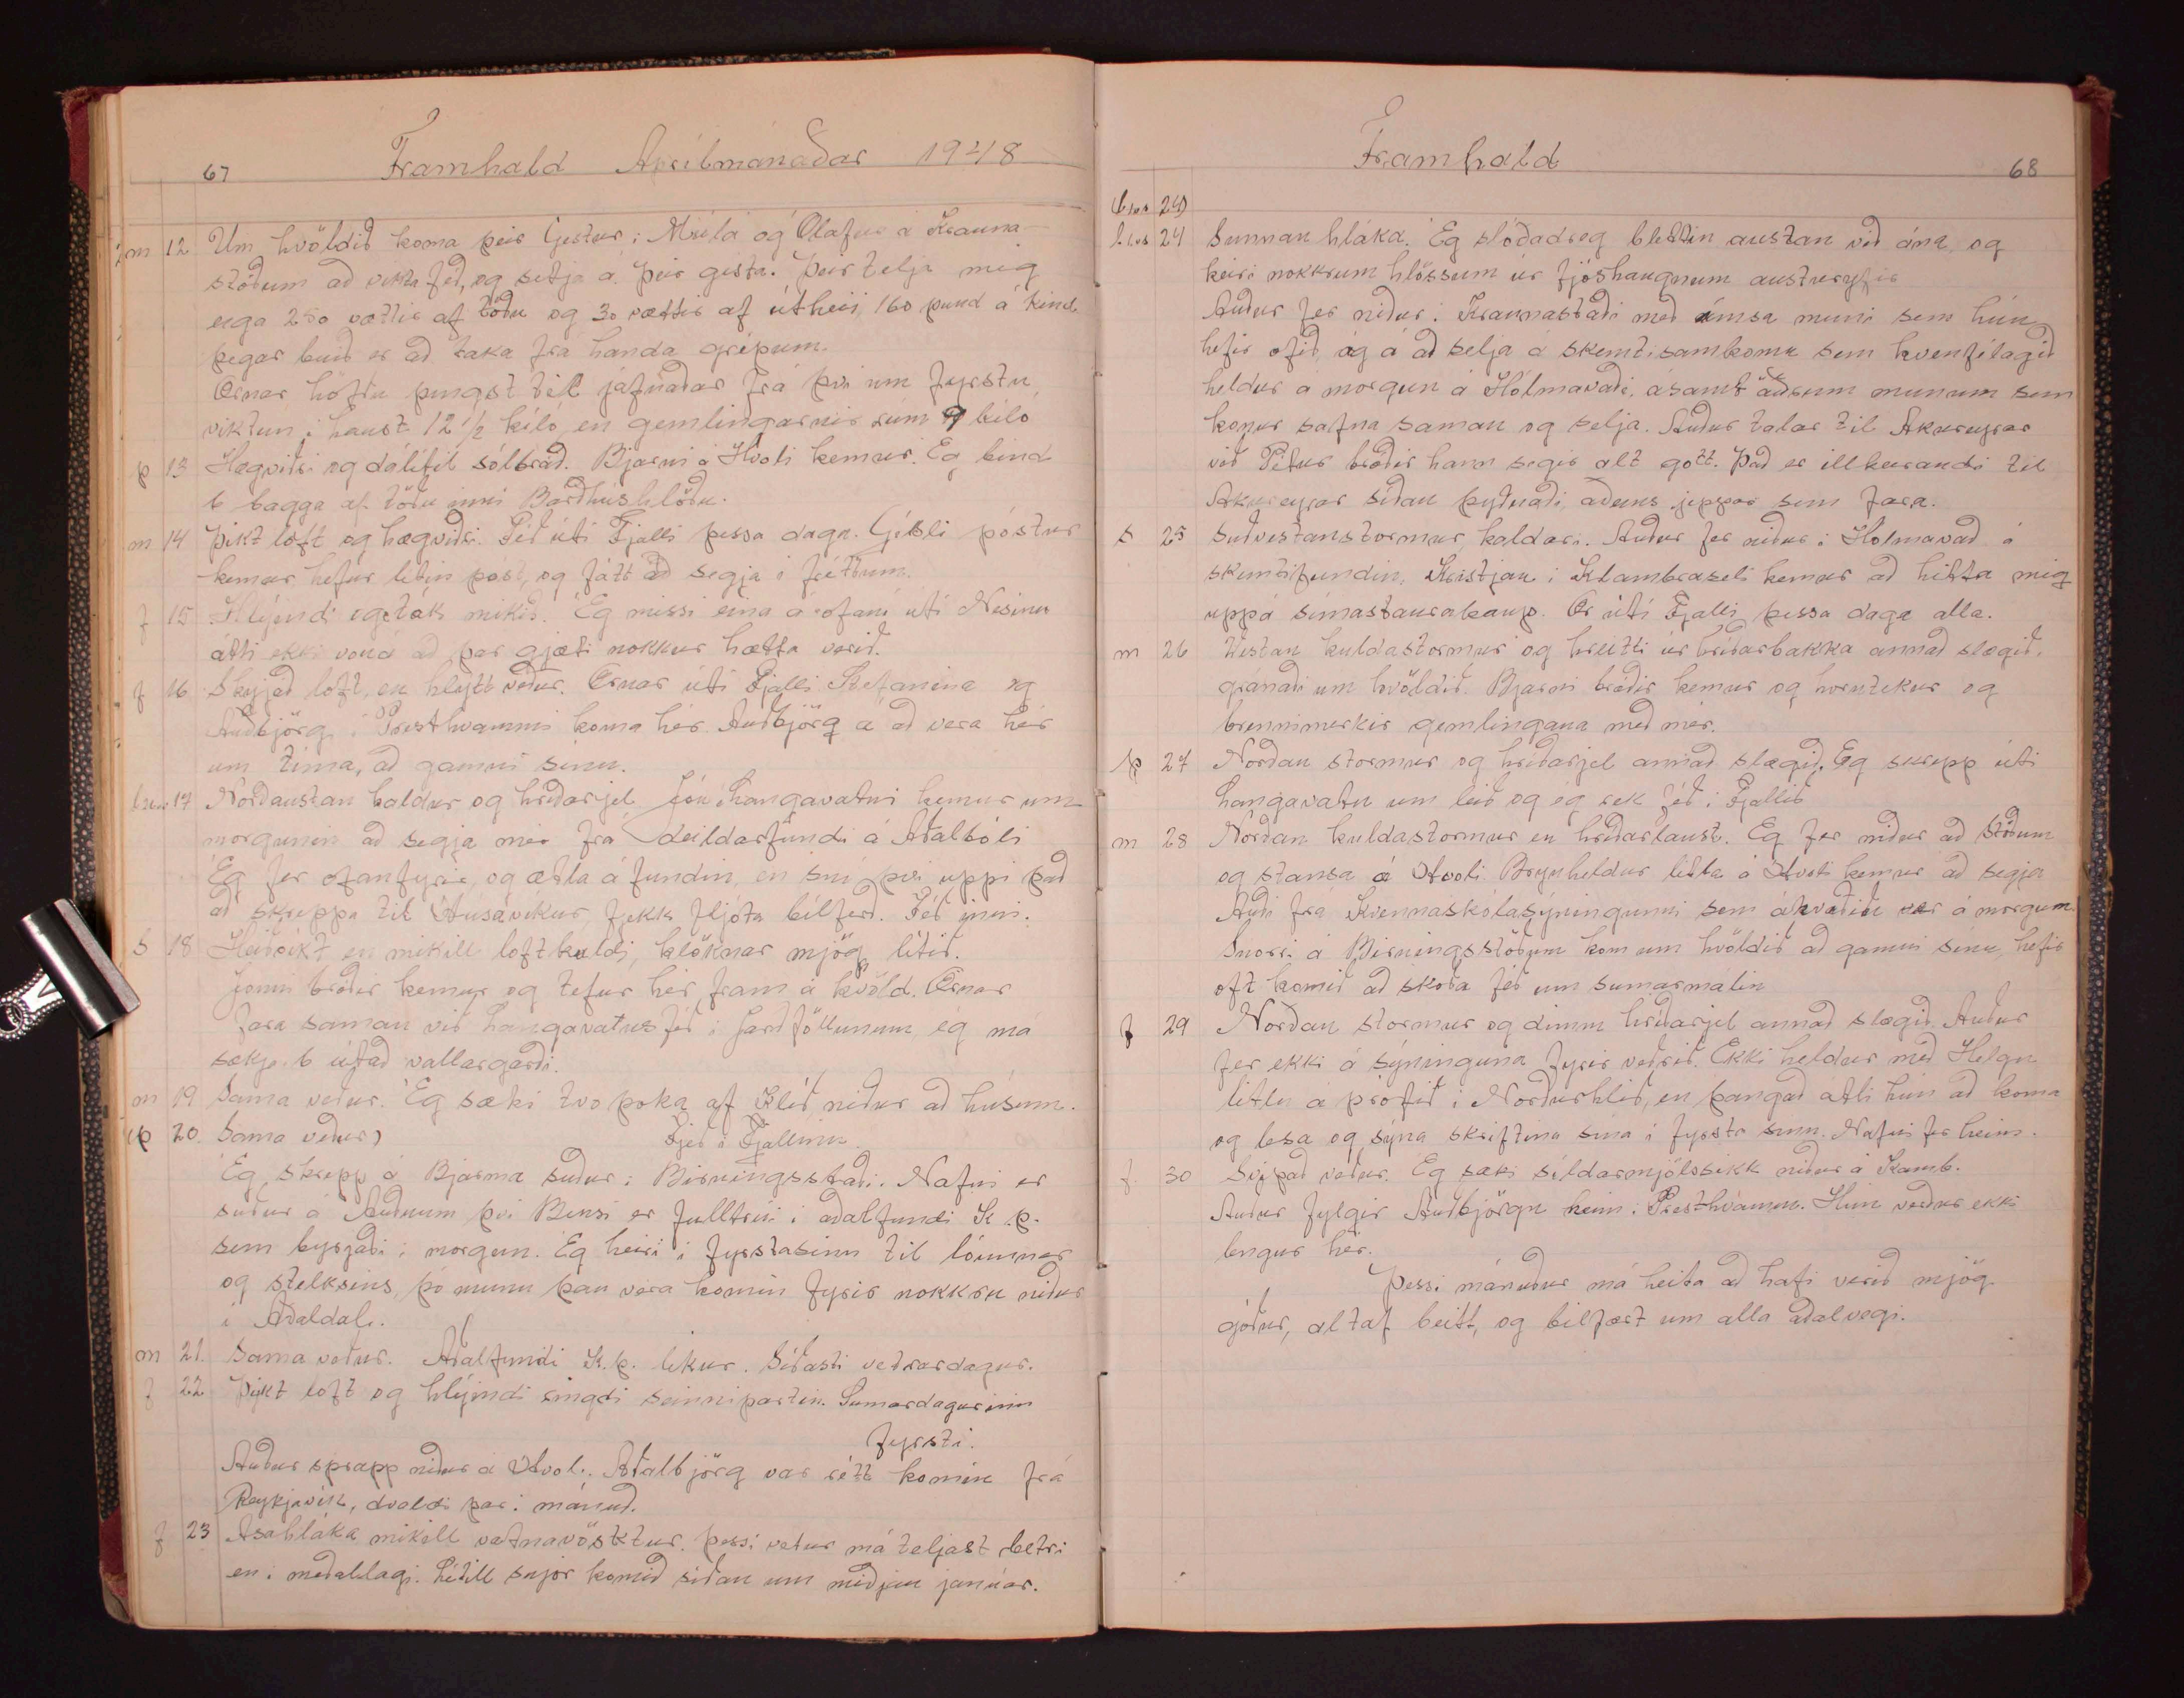 67 Framhald Aprílmánaðar 1948
m 12 Um kvöldið koma þeir Gestur í Múla og Ólafur á Kraunastöðum
að vikta féð, og setja á. Þeir gista. Þeir telja mig
eiga 250 vættir af töðu og 30 vættir af útheii, 160 pund á kind
þegar buið er að taka frá handa gripum.
Ærnar höfðu þingst til jafnaðar frá því um fyrstu
viktun í haust 12 1/2 kíló, en gemlingarnir rúm 9 kíló
þ 13 Hægviðri og dálitil sólbráð. Bjarni á Hvoli kemur. Eg bind
6 bagga af töðu inni Barðhúshlöðu.
m 14 Þikt loft og hægviðri. Féð úti Fjalli þessa daga. Gísli póstur
kemur hefur litin post, og fátt að segja í fréttum.
f 15 Hlýindi og tók mikið. Eg missi eina á ofaní úti Nesinu
átti ekki voná að þar gjæti nokkur hætta verið.
f 16 Skyjað loft, en hlýtt veður. Ærnar úti Fjalli Stefanina og
Auðbjörg í Presthvammi koma hér. Auðbjörg á að vera hér
um tíma, að gamni sínu.
laur 17 Norðaustan kaldur og hriðarjel Jón Langavatni kemur um
morgunin að segja mér frá deildarfundi á Aðalbóli
Eg fer ofanfyrir, og ætla á fundin, en sný því uppi það
að skreppa til Húsavíkur, fjekk fljóta bílferð. Féð inni.
S 18 Heiðrikt en mikill loftkuldi, klöknar mjög lítið.
Jonni bróðir kemur og tefur hér fram á kvöld. Ærnar
fara saman við Langavatns féð í Jarðföllunum, ég má
sækja 6 útað vallargarði.
m 19 Sama veður. Eg sæki tvo poka af Klíð niður að húsum.
þ 20. Sama veður) Fjéð í Fjallinu
Eg skrepp á Bjarma suður í Birningsstaði. Nafni er
suður á Auðnum því Bensi er fulltrúi í aðalfundi K.Þ.
sem byrjaði í morgun. Eg heiri í fyrstasinn til lóunnar
og stelksins, þó munu þau vera komin fyrir nokkru niður
í Aðaldal.
m 21. Sama veður. Aðalfundi K.Þ. likur. Síðasti vetrardagur.
f 22 Þykt loft og hlýindi ringdi seinnipartin. Sumardagurinn
fyrsti.
Auður skrapp niður á Hvol. Aðalbjörg var rétt komin frá
Reykjavík, dvaldi þar í mánuð.
f 23 Asahláka mikill vatnavöxktur. Þessi vetur má teljast betri
en í meðallagi. Lítill snjór komið síðan um miðjan janúar.
Framhald 68
24)
l. 24 Sunnan hláka. Eg slóðadreg blettin austan við ána, og
keiri nokkrum hlössum úr fjóshaugnum austuryfir
Auður fer niður í Kraunastaði með ímsa muni sem hún
hefir ofið, og á að selja á skemtisamkomu sem kvenfélagið
heldur á morgun á Hólmavaði, ásamt öðrum munum sem
konur safna saman og selja. Auður talar til Akureyrar
við Pétur bróðir hann segir alt gott. Það er illkeirandi til
Akureyrar síðan þytnaði, aðeins jeppar sem fara.
S 25 Suðvestanstormur, kaldari. Auður fer niður í Holmavað á
skemtifundin. Kristjan í Klambraseli kemur að hitta mig
uppá símastaurakaup. Ær úti Fjalli þessa daga alla.
m 26 Vestan kuldastormur og hreitti úr hríðarbakka annað slægið.
gránaði um kvöldið. Bjarni bróðir kemur og horntekur og
brennimerkir gemlingana með mér.
þ 27 Norðan stormur og hriðarjel annað slægið. Eg skrepp úti
Langavatn um leið og eg rek féð í Fjallið
m 28 Norðan kuldastormur en hriðarlaust. Eg fer niður að Stöðum
og stansa á Hvoli Brynheldur litla á Hvoli kemur að segja
Auði frá Kvennaskólasýningunni sem ákvaðin var á morgun.
Snorri á Birningsstöðum kom um kvöldið að gamni sínu, hefir
oft komið að skoða féð um sumarmálin
f 29 Norðan stormur og dimm hriðarjel annað slægið. Auður
fer ekki á sýninguna fyrir veðrið. Ekki heldur með Helgu
litlu á prófið í Norðurhlíð, en þangað átti hún að koma
og lesa og sýna skriftina sína í fyrsta sinn. Nafni fer heim.
f 30 Svipað veður. Eg sæki síldarmjölssikk niður á Kamb.
Auður fylgir Auðbjörgu heim í Presthvamm. Hún verður ekki
lengur hér.
Þessi mánuður má heita að hafi verið mjög
góður, altaf beitt, og bílfært um alla aðalvegi.